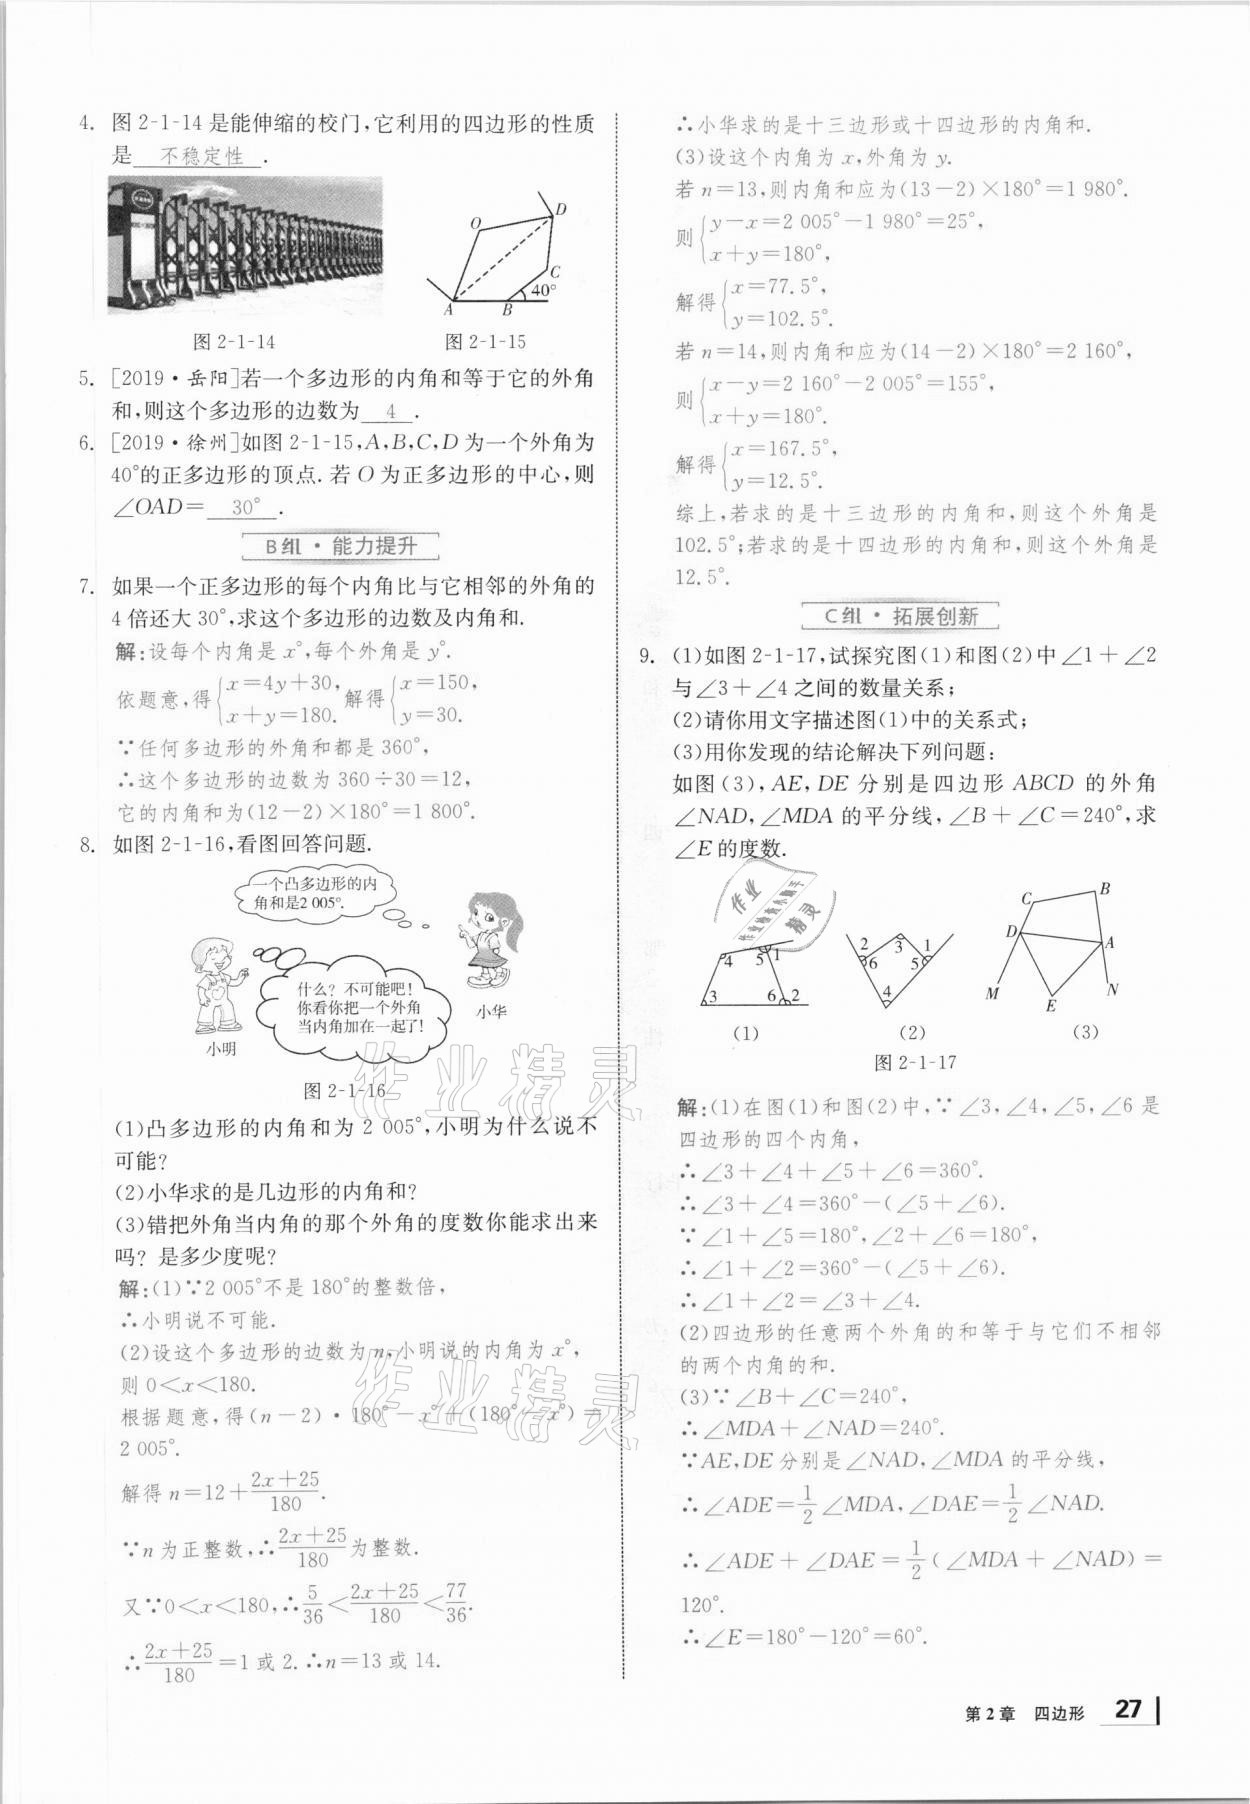 4. 图2-1-14是能伸缩的校门,它利用的四边形的性质
是 不稳定性 .
O
D
C
40°
A
B
图2-1-14
图2-1-15
5. [2019·岳阳]若一个多边形的内角和等于它的外角
和,则这个多边形的边数为 4 .
6. [2019·徐州]如图2-1-15,A,B,C,D为一个外角为
40°的正多边形的顶点.若O为正多边形的中心,则
∠OAD= 30° .
B组·能力提升
7. 如果一个正多边形的每个内角比与它相邻的外角的
4倍还大30°,求这个多边形的边数及内角和.
解:设每个内角是x°,每个外角是y°.
依题意,得{x=4y+30, x+y=180. 解得{x=150, y=30.
∵任何多边形的外角和都是360°,
∴这个多边形的边数为360÷30=12,
它的内角和为(12-2)×180°=1 800°.
8. 如图2-1-16,看图回答问题.
一个凸多边形的内
角和是2 005°.
什么?不可能吧!
你看你把一个外角
当内角加在一起了!
小明
小华
图2-1-16
(1)凸多边形的内角和为2 005°,小明为什么说不
可能?
(2)小华求的是几边形的内角和?
(3)错把外角当内角的那个外角的度数你能求出来
吗?是多少度呢?
解:(1)∵2 005°不是180°的整数倍,
∴小明说不可能.
(2)设这个多边形的边数为n,小明说的内角为x°,
则0<x<180.
根据题意,得(n-2)·180°-x°+(180°-x°)=
2 005°.
解得n=12+(2x+25)/180.
∵n为正整数,∴(2x+25)/180为整数.
又∵0<x<180,∴5/36<(2x+25)/180<77/36.
∴(2x+25)/180=1或2.∴n=13或14.
∴小华求的是十三边形或十四边形的内角和.
(3)设这个内角为x,外角为y.
若n=13,则内角和应为(13-2)×180°=1 980°.
则{y-x=2 005°-1 980°=25°, x+y=180°,
解得{x=77.5°, y=102.5°.
若n=14,则内角和应为(14-2)×180°=2 160°,
则{x-y=2 160°-2 005°=155°, x+y=180°.
解得{x=167.5°, y=12.5°.
综上,若求的是十三边形的内角和,则这个外角是
102.5°;若求的是十四边形的内角和,则这个外角是
12.5°.
C组·拓展创新
9. (1)如图2-1-17,试探究图(1)和图(2)中∠1+∠2
与∠3+∠4之间的数量关系;
(2)请你用文字描述图(1)中的关系式;
(3)用你发现的结论解决下列问题:
如图(3),AE,DE分别是四边形ABCD的外角
∠NAD,∠MDA的平分线,∠B+∠C=240°,求
∠E的度数.
4 5 1
3 6 2
(1)
2 3 1
6 5
4
(2)
C B
D A
M E N
(3)
图2-1-17
解:(1)在图(1)和图(2)中,∵∠3,∠4,∠5,∠6是
四边形的四个内角,
∴∠3+∠4+∠5+∠6=360°.
∴∠3+∠4=360°-(∠5+∠6).
∵∠1+∠5=180°,∠2+∠6=180°,
∴∠1+∠2=360°-(∠5+∠6).
∴∠1+∠2=∠3+∠4.
(2)四边形的任意两个外角的和等于与它们不相邻
的两个内角的和.
(3)∵∠B+∠C=240°,
∴∠MDA+∠NAD=240°.
∵AE,DE分别是∠NAD,∠MDA的平分线,
∴∠ADE=1/2∠MDA,∠DAE=1/2∠NAD.
∴∠ADE+∠DAE=1/2(∠MDA+∠NAD)=
120°.
∴∠E=180°-120°=60°.
作业精灵
作业精灵
第2章 四边形 27